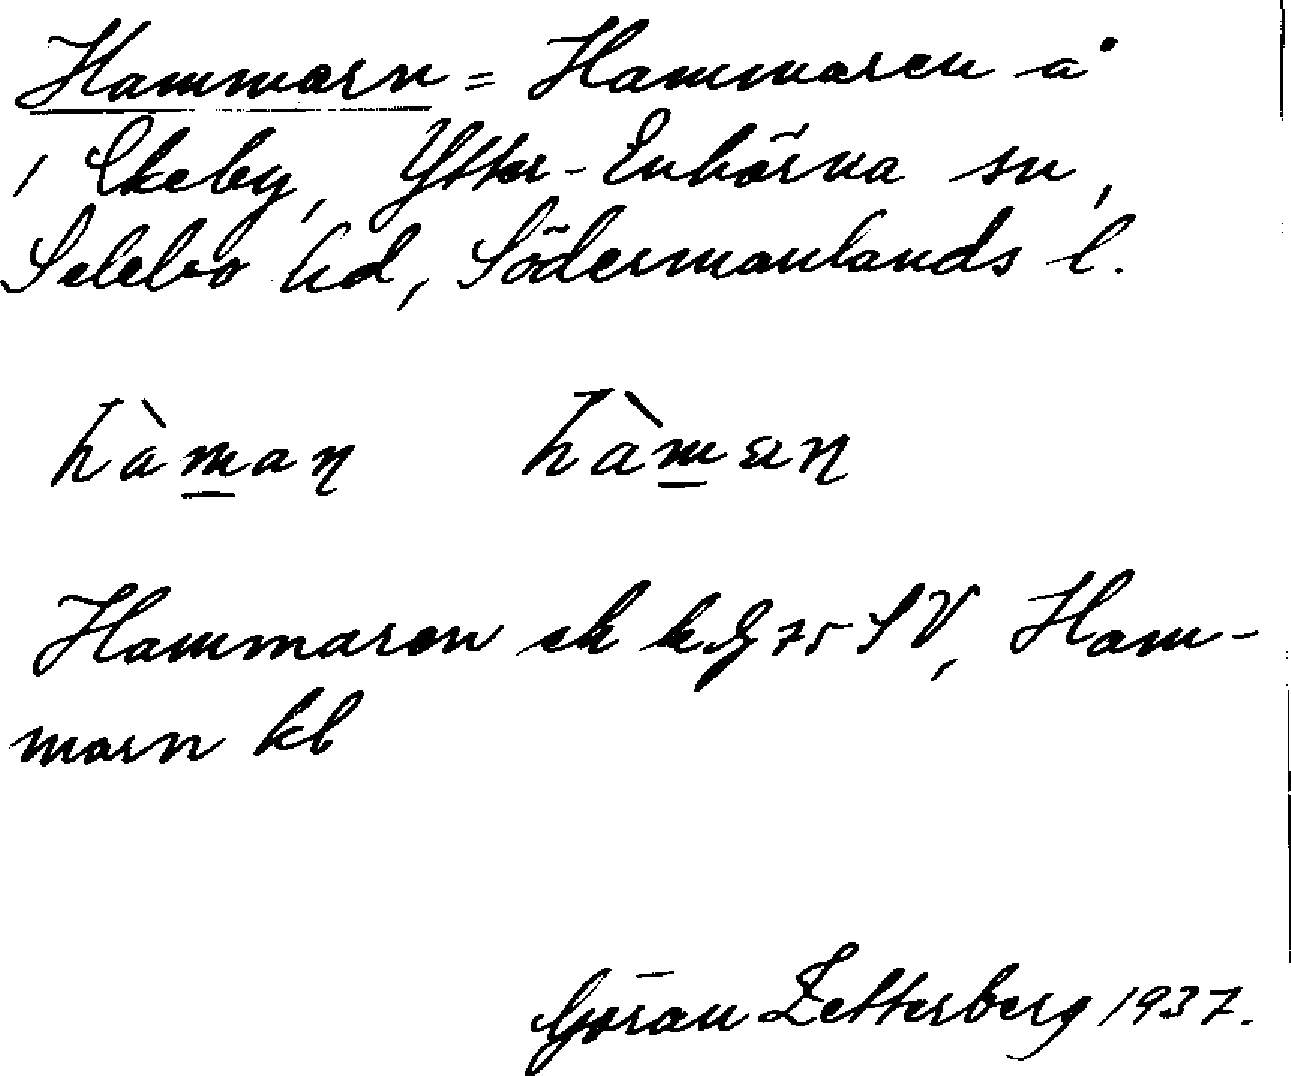 Hammarn = Hammaren å
i Ekeby, Ytter-Enhörna sn,
Selebo hd, Södermanlands l.
hàmaɳ hàmaɳ
Hammaren ek bl. 75 SV, Ham-
marn kb
Göran Zetterberg 1937.